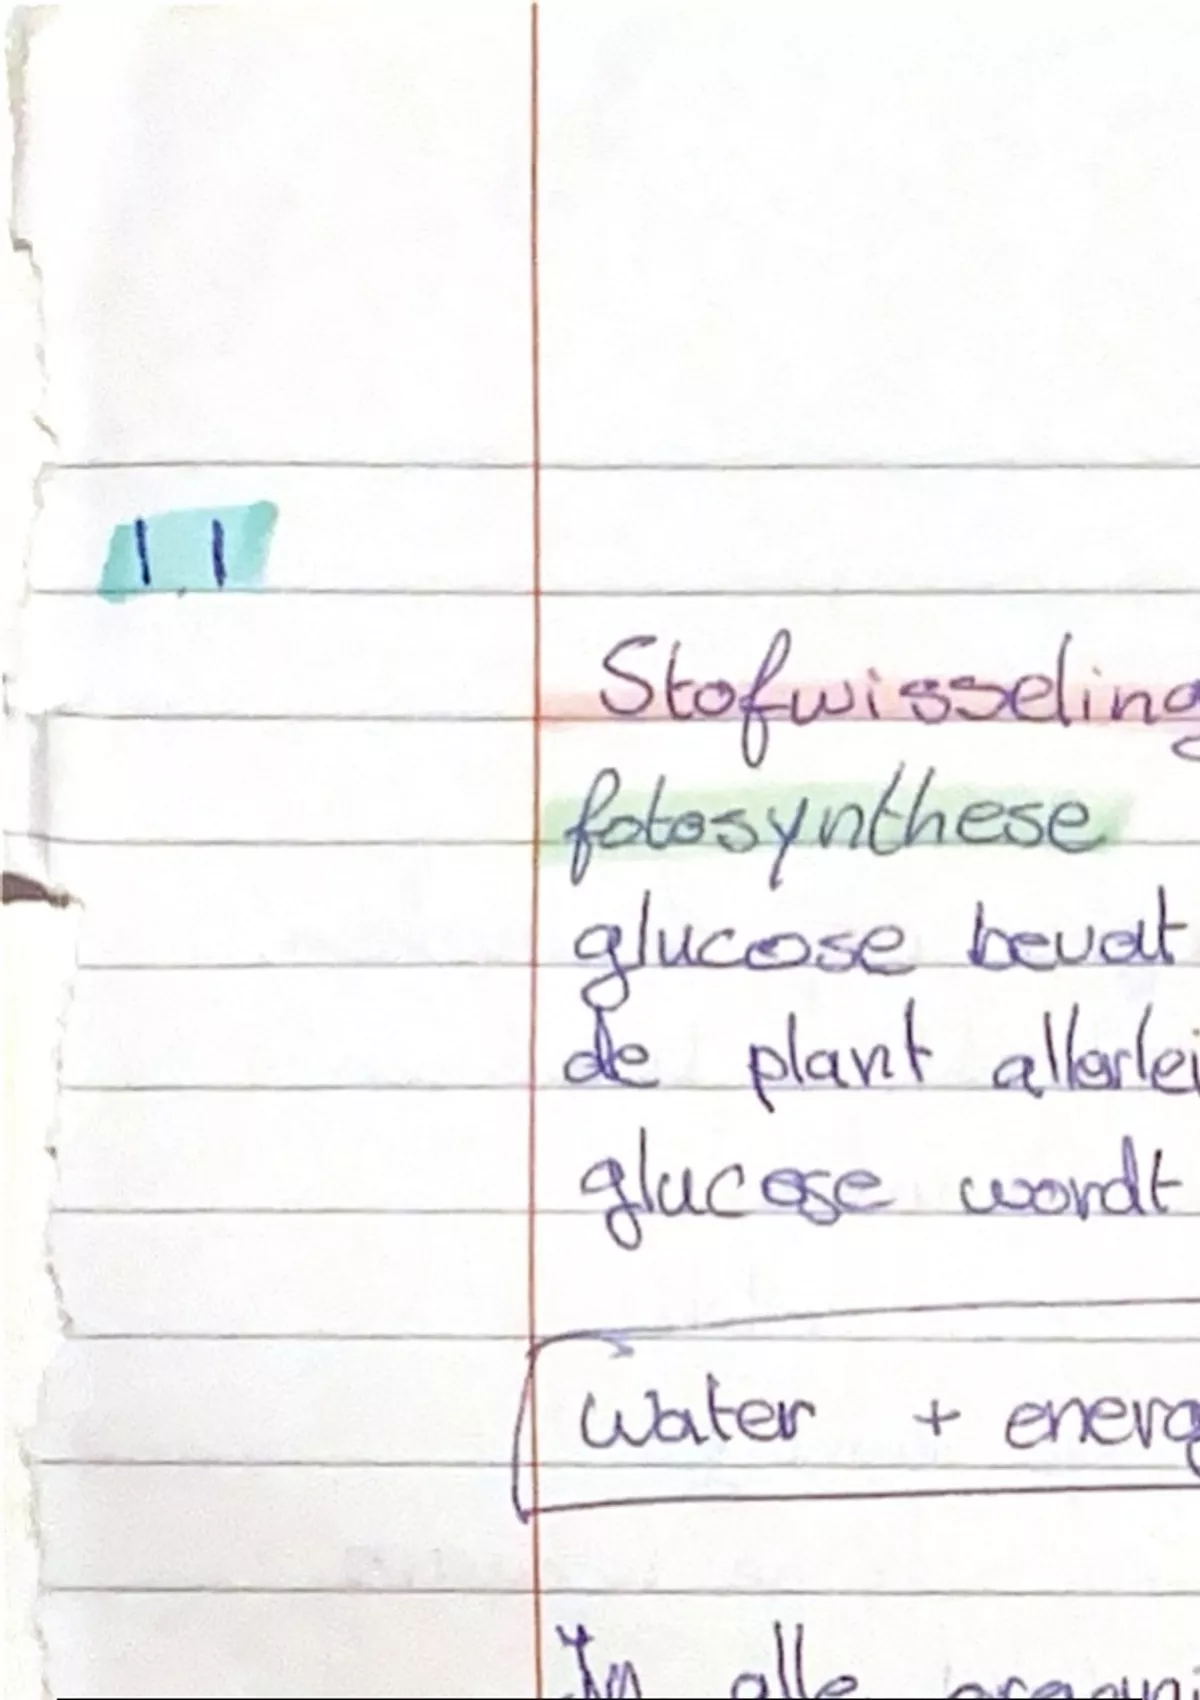 1.1
Stofwisseling
fotosynthese
glucose bevat
de plant allerlei
glucose wordt
Water + energ
In alle organi